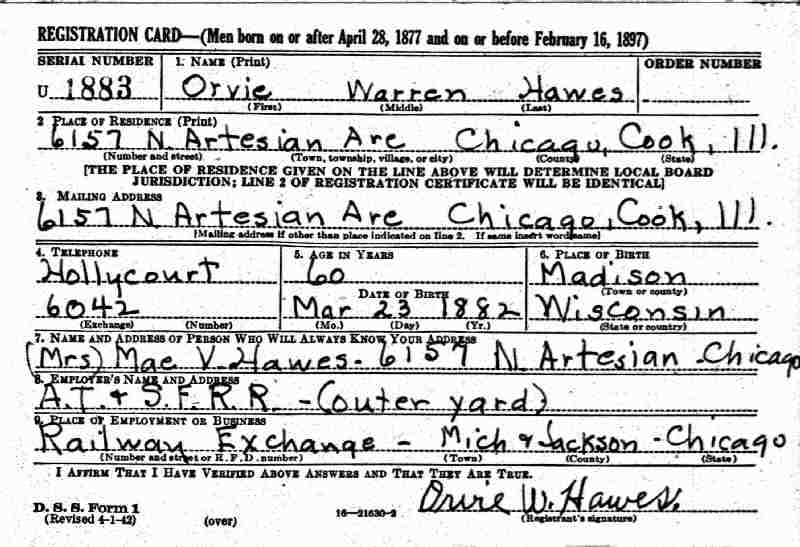 REGISTRATION CARD—(Men born on or after April 28, 1877 and on or before February 16, 1897)
SERIAL NUMBER 1. NAME (Print) ORDER NUMBER
U 1883 Orvie Warren Hawes
(First) (Middle) (Last)
2 PLACE OF RESIDENCE (Print)
6157 N. Artesian Ave Chicago, Cook, Ill.
(Number and street) (Town, township, village, or city) (County) (State)
[THE PLACE OF RESIDENCE GIVEN ON THE LINE ABOVE WILL DETERMINE LOCAL BOARD
JURISDICTION; LINE 2 OF REGISTRATION CERTIFICATE WILL BE IDENTICAL]
3. MAILING ADDRESS
6157 N Artesian Ave Chicago, Cook, Ill.
[Mailing address if other than place indicated on line 2. If same insert word same]
4. TELEPHONE 5. AGE IN YEARS 6. PLACE OF BIRTH
Hollycourt 60 Madison
DATE OF BIRTH (Town or county)
6042 Mar 23 1882 Wisconsin
(Exchange) (Number) (Mo.) (Day) (Yr.) (State or country)
7. NAME AND ADDRESS OF PERSON WHO WILL ALWAYS KNOW YOUR ADDRESS
(Mrs) Mae V. Hawes - 6157 N Artesian - Chicago
8. EMPLOYER'S NAME AND ADDRESS
A.T. & S.F. R.R. - (outer yard)
9. PLACE OF EMPLOYMENT OR BUSINESS
Railway Exchange - Mich & Jackson - Chicago
(Number and street or R. F. D. number) (Town) (County) (State)
I AFFIRM THAT I HAVE VERIFIED ABOVE ANSWERS AND THAT THEY ARE TRUE.
Orvie W. Hawes.
D. S. S. Form 1
(Revised 4-1-42) (over) 16—21630-2 (Registrant's signature)